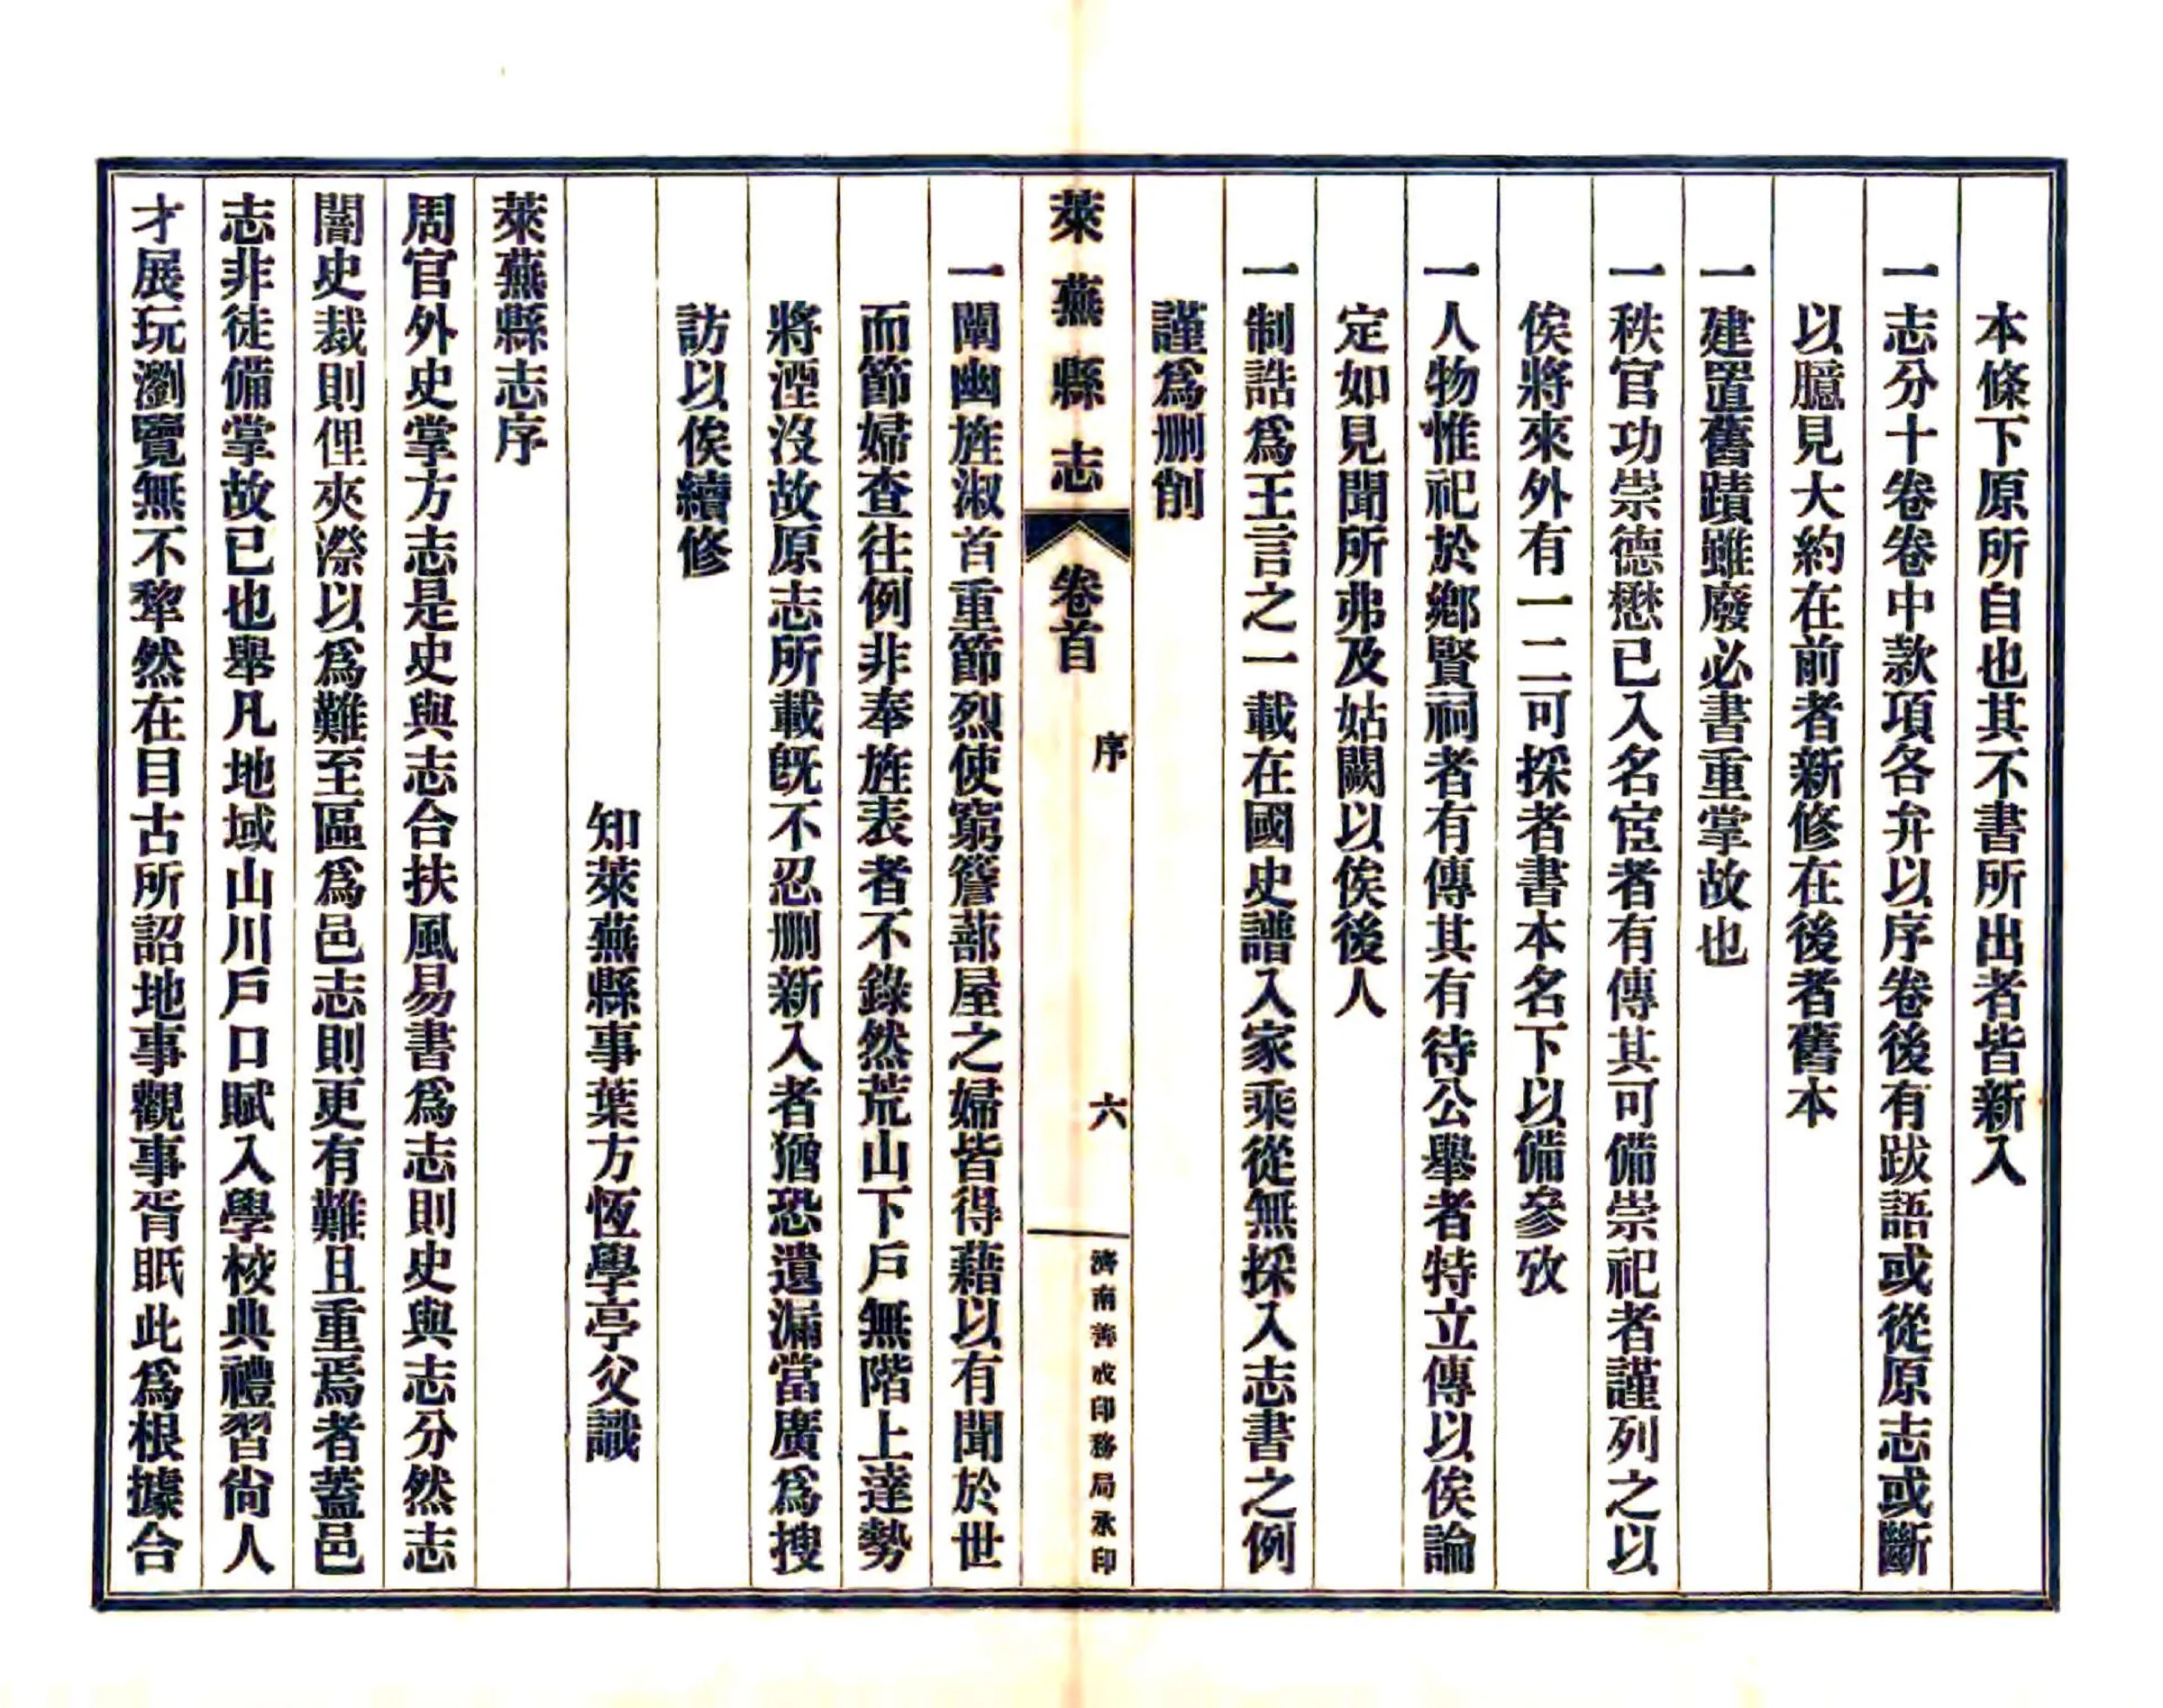 本條下原所自也其不書所出者皆新入
一志分十卷卷中款項各弁以序卷後有跋語或從原志或斷
以臆見大約在前者新修在後者舊本
一建置舊蹟雖廢必書重掌故也
一秩官功崇德懋已入名宦者有傳其可備崇祀者謹列之以
俟將來外有一二可採者書本名下以備參攷
一人物惟祀於鄉賢祠者有傳其有待公舉者特立傳以俟論
定如見聞所弗及姑闕以俟後人
一制誥爲王言之一載在國史譜入家乘從無採入志書之例
謹爲删削
萊蕪縣志
卷首
序
六
濟南善成印務局承印
一闡幽旌淑首重節烈使窮簷蔀屋之婦皆得藉以有聞於世
而節婦查往例非奉旌表者不錄然荒山下戶無階上達勢
將湮沒故原志所載旣不忍删新入者猶恐遺漏當廣爲搜
訪以俟續修
知萊蕪縣事葉方恆學亭父識
萊蕪縣志序
周官外史掌方志是史與志合扶風易書爲志則史與志分然志
闇史裁則俚夾漈以爲難至區爲邑志則更有難且重焉者蓋邑
志非徒備掌故已也舉凡地域山川戶口賦入學校典禮習尙人
才展玩瀏覽無不犂然在目古所詔地事觀事胥眂此爲根據合